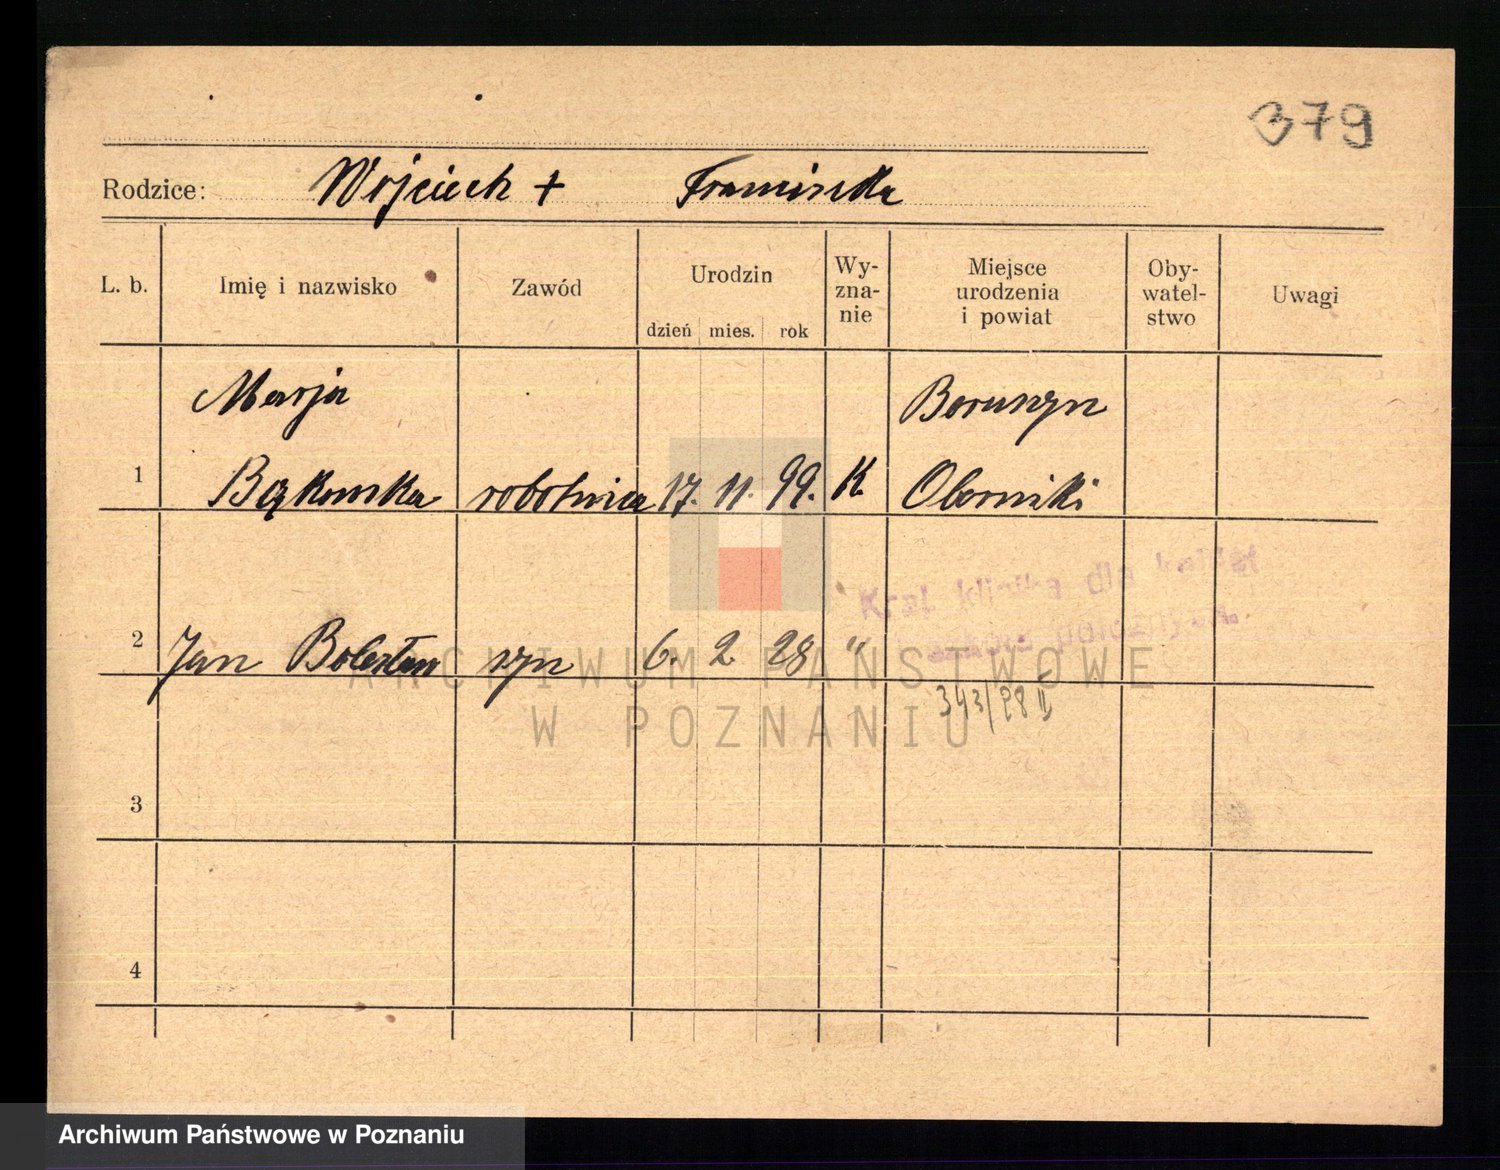 379
Rodzice: Wojciech + Franciszka
L. b. Imię i nazwisko Zawód Urodzin dzień mies. rok Wy-zna-nie Miejsce urodzenia i powiat Oby-watel-stwo Uwagi
Marja Boruszyn
1 Bąkowska robotnica 17. 11. 99. K. Oborniki
2 Jan Bolesław syn 6. 2. 28 "
343/28 II
3
4
ARCHIWUM PAŃSTWOWE
W POZNANIU
Archiwum Państwowe w Poznaniu